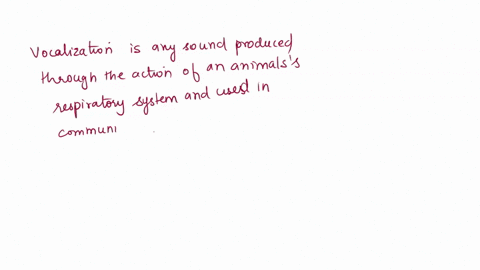 Vocalization is any sound produced
through the action of an animals's
respiratory system and used in
communi